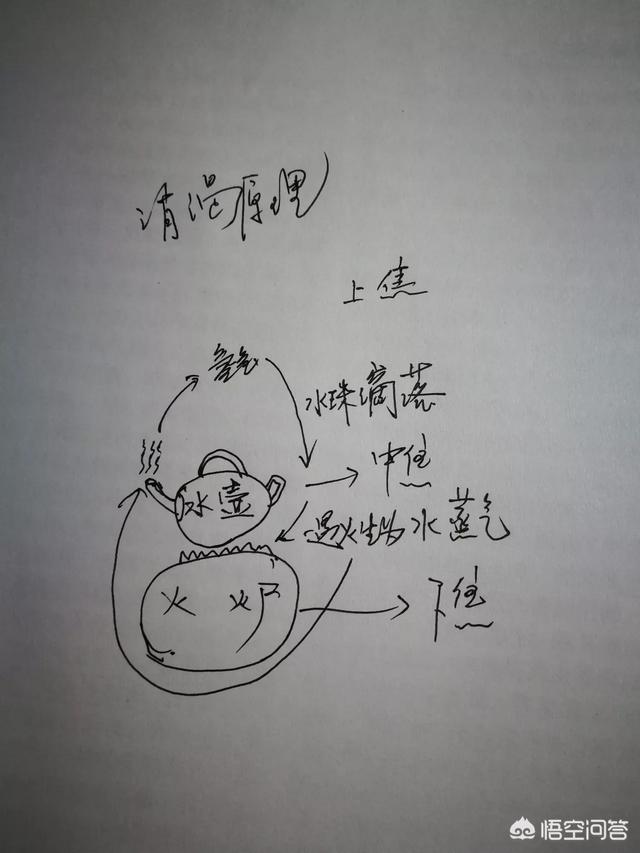 消渴原理
上焦
水珠滴落
中焦
水壶
遇火 为水蒸气
火炉
下焦
悟空问答